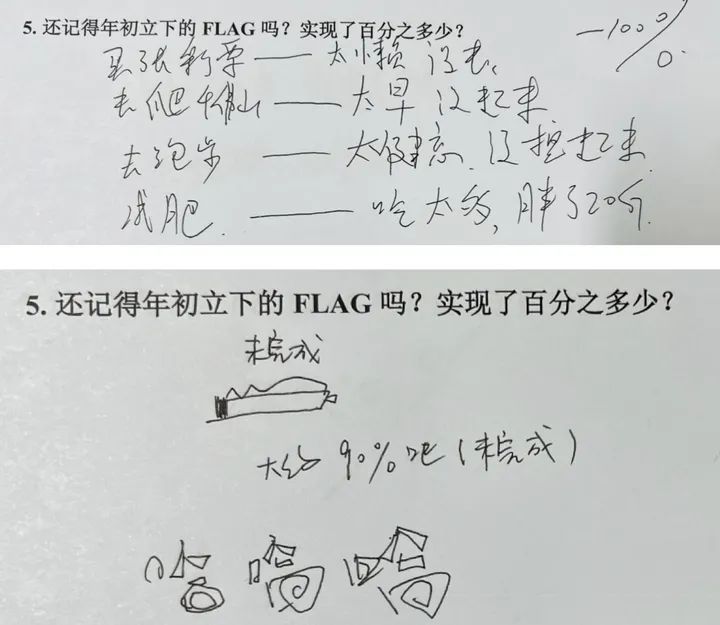 5. 还记得年初立下的 FLAG 吗？实现了百分之多少？
-100%
买张彩票——太懒 没去
去爬佛山——太早 没起来
去跑步——太健忘，没想起来
减肥.——吃太多，胖了20斤.
5. 还记得年初立下的 FLAG 吗？实现了百分之多少？
未完成
大约 90%吧（未完成）
哈哈哈